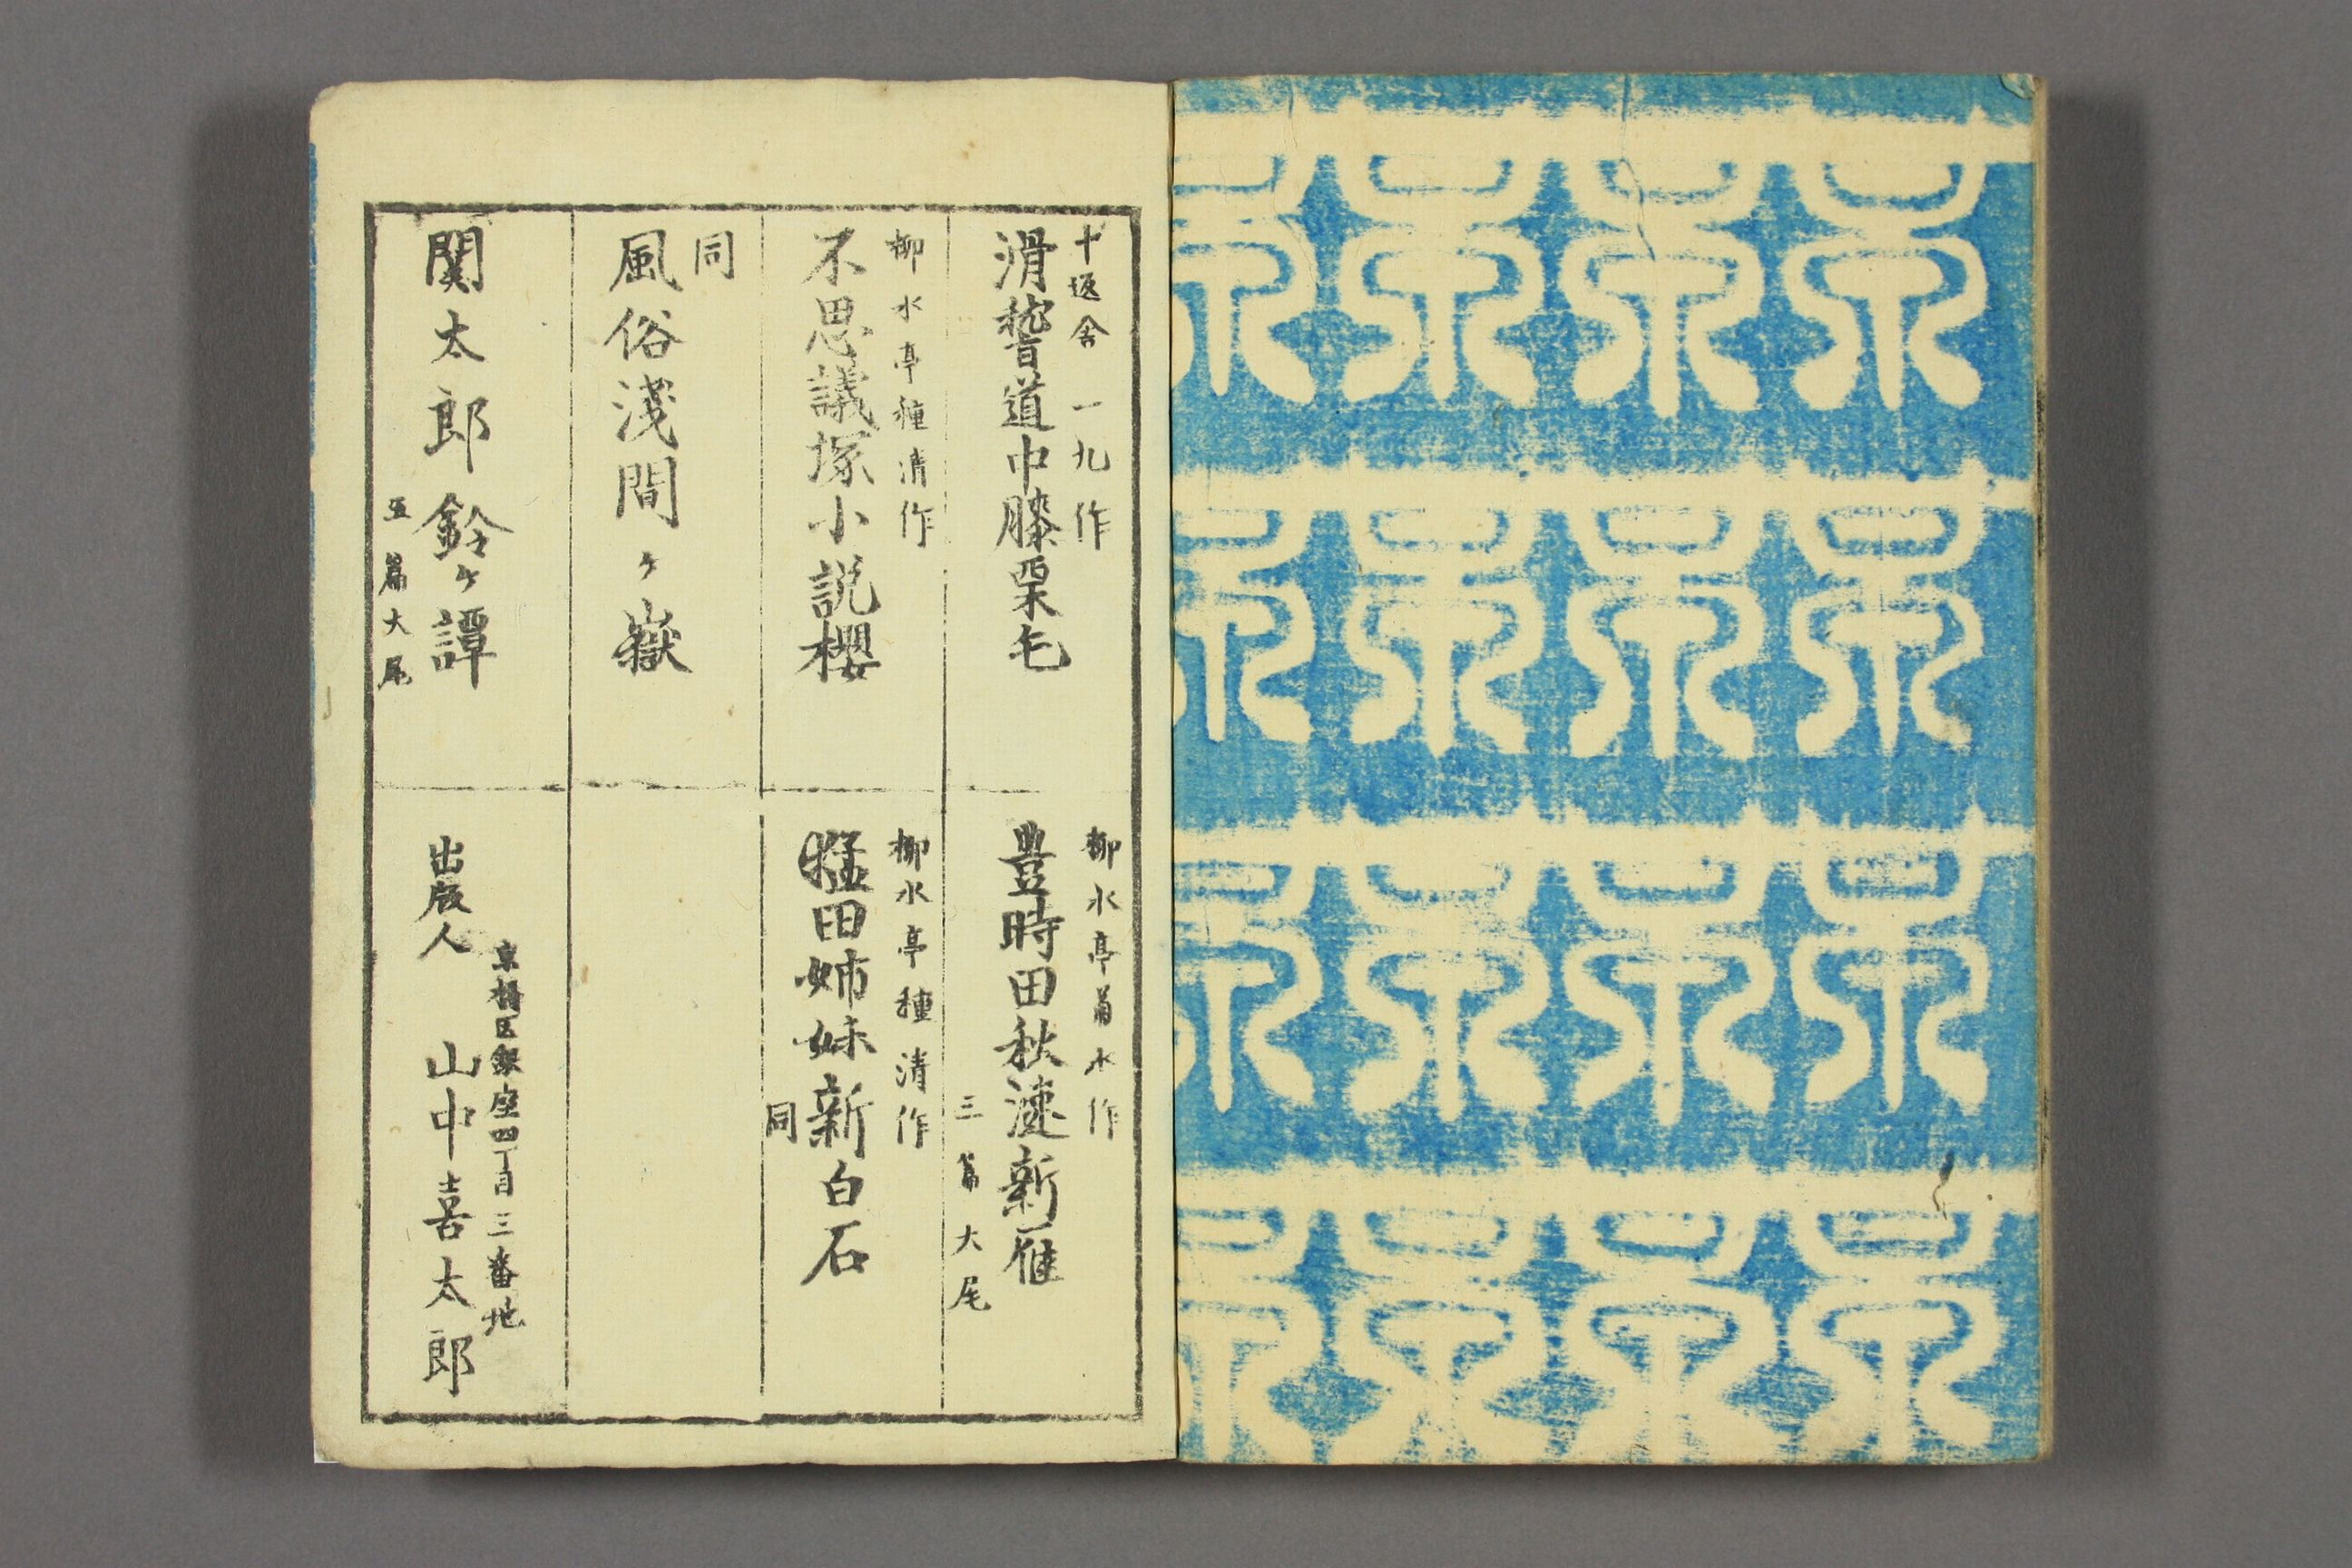 十返舎一九作
滑稽道中膝栗毛
柳水亭種清作
不思議塚小説櫻
同
風俗淺間ヶ嶽
関太郎鈴ヶ譚
五篇大尾
柳水亭菊水作
豊時田秋濹新雁
三篇大尾
柳水亭種清作
猛田姉妹新白石
同
出版人
京橋区銀座四丁目三番地
山中喜太郎